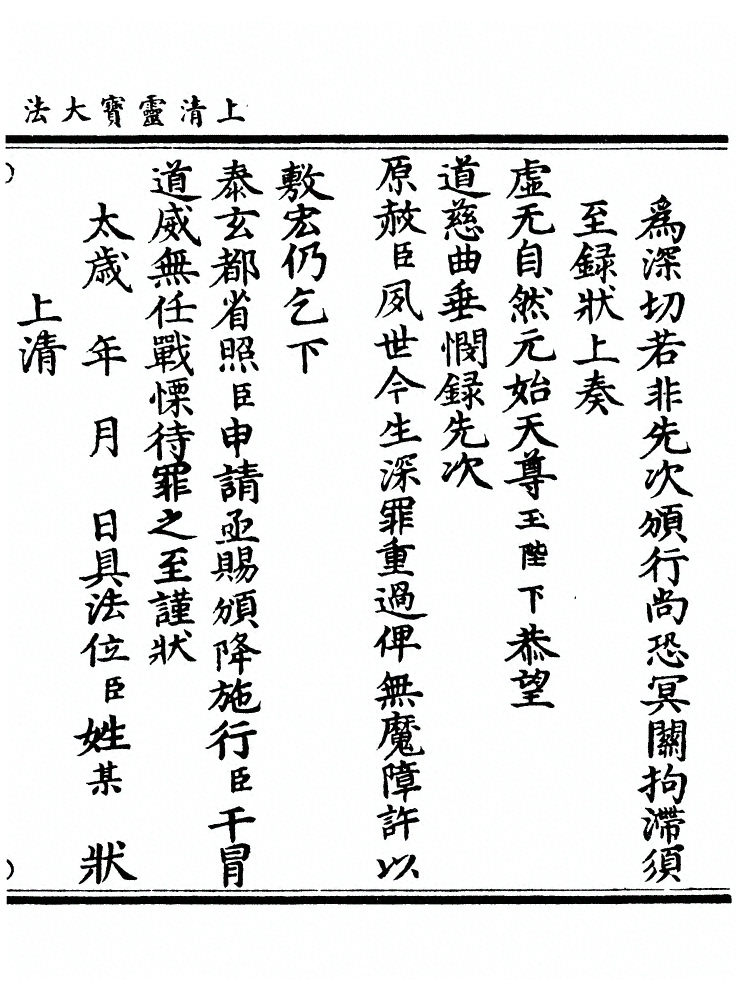 上清靈寶大法
爲深切若非先次頒行尚恐冥關拘滯須
至録狀上奏
虛无自然元始天尊玉陛下恭望
道慈曲垂憫録先次
原赦臣夙世今生深罪重過俾無魔障許以
敷宏仍乞下
泰玄都省照臣申請亟賜頒降施行臣干冒
道威無任戰慄待罪之至謹狀
太歲年月日具法位臣姓某狀
上清